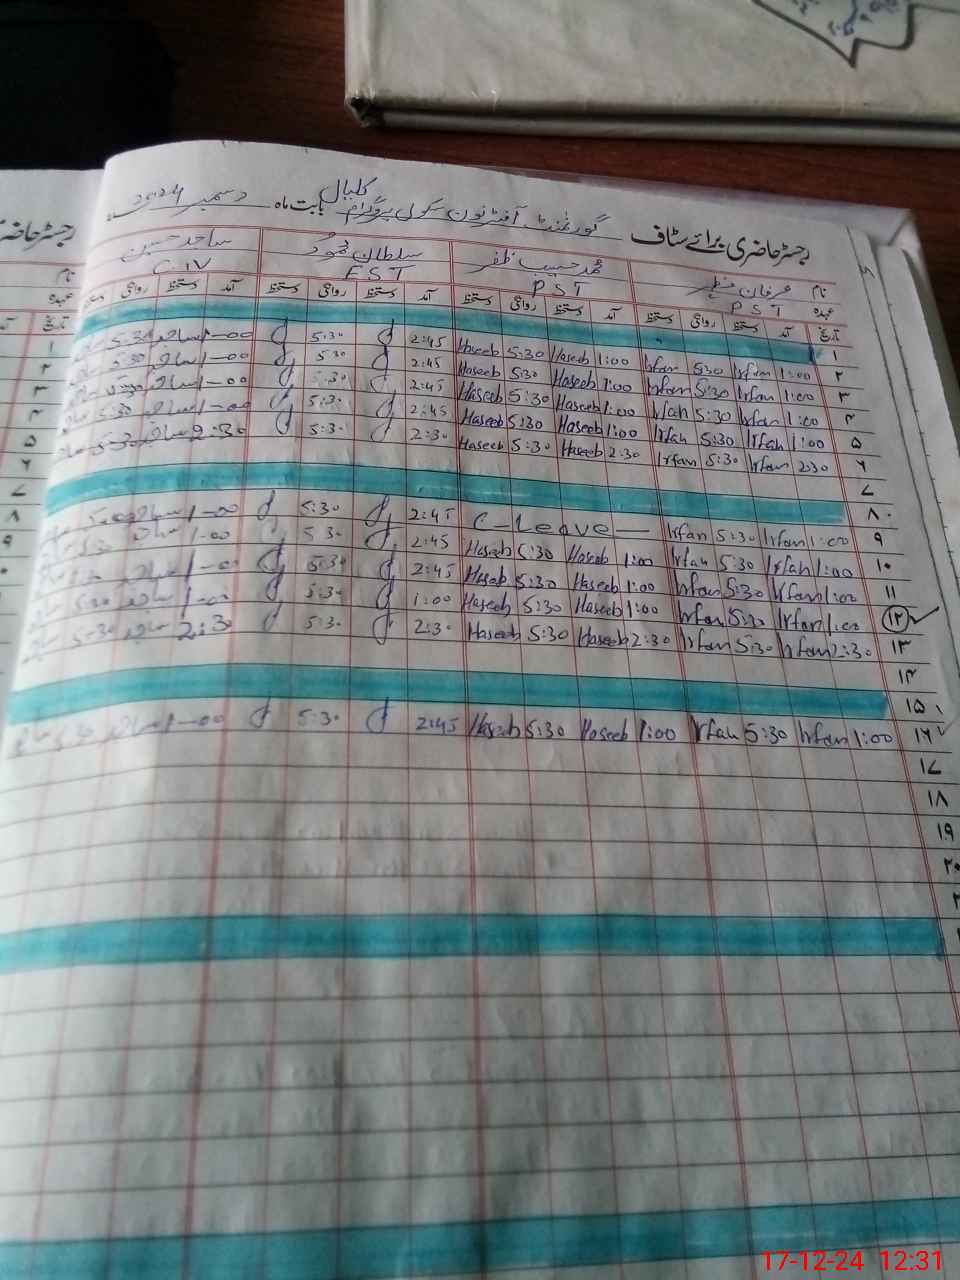 رجسٹر حاضری برائے سٹاف گورنمنٹ آفٹر نون سکول پروگرام کلیال بابت ماہ دسمبر 2024ء
نام عرفان محمد حسیب ظفر سلطان محمود ساجد حسین
عہدہ PST PST EST C-IV
تاریخ آمد دستخط روانگی دستخط آمد دستخط روانگی دستخط آمد دستخط روانگی دستخط آمد دستخط روانگی
۱
۲ 1:00 Irfan 5:30 Irfan 1:00 Haseeb 5:30 Haseeb 2:45 5:30 1-00 ساجد 5:30
۳ 1:00 Irfan 5:30 Irfan 1:00 Haseeb 5:30 Haseeb 2:45 5:30 1-00 ساجد 5:30
۴ 1:00 Irfan 5:30 Irfan 1:00 Haseeb 5:30 Haseeb 2:45 5:30 1-00 ساجد 5:30
۵ 1:00 Irfan 5:30 Irfan 1:00 Haseeb 5:30 Haseeb 2:45 5:30 1-00 ساجد 5:30
۶ 2:30 Irfan 5:30 Irfan 2:30 Haseeb 5:30 Haseeb 2:30 5:30 2:30 ساجد 5:30
۷
۸
۹ 1:00 Irfan 5:30 Irfan C-Leave 2:45 5:30 1-00 ساجد
۱۰ 1:00 Irfan 5:30 Irfan 1:00 Haseeb 5:30 Haseeb 2:45 5:30 1-00 ساجد 5:30
۱۱ 1:00 Irfan 5:30 Irfan 1:00 Haseeb 5:30 Haseeb 2:45 5:30 1-00 ساجد
۱۲ 1:00 Irfan 5:30 Irfan 1:00 Haseeb 5:30 Haseeb 1:00 5:30 1-00 ساجد 5:30
۱۳ 2:30 Irfan 5:30 Irfan 2:30 Haseeb 5:30 Haseeb 2:30 5:30 2:30 ساجد 5:30
۱۴
۱۵
۱۶ 1:00 Irfan 5:30 Irfan 1:00 Haseeb 5:30 Haseeb 2:45 5:30 1-00 ساجد 5:30
۱۷
۱۸
۱۹
۲۰
17-12-24 12:31